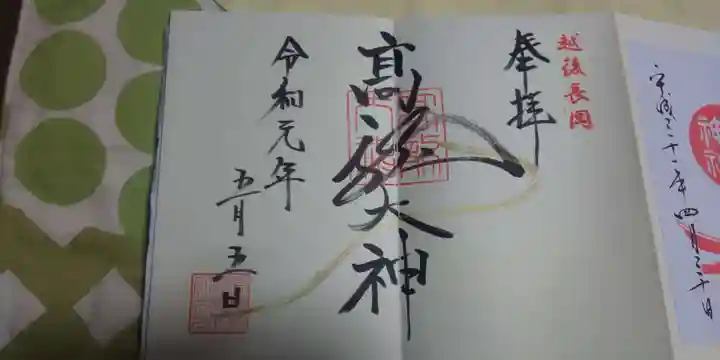 越後長岡
奉拝
高彦大神
令和元年
五月五日
平成三十一年四月三十日